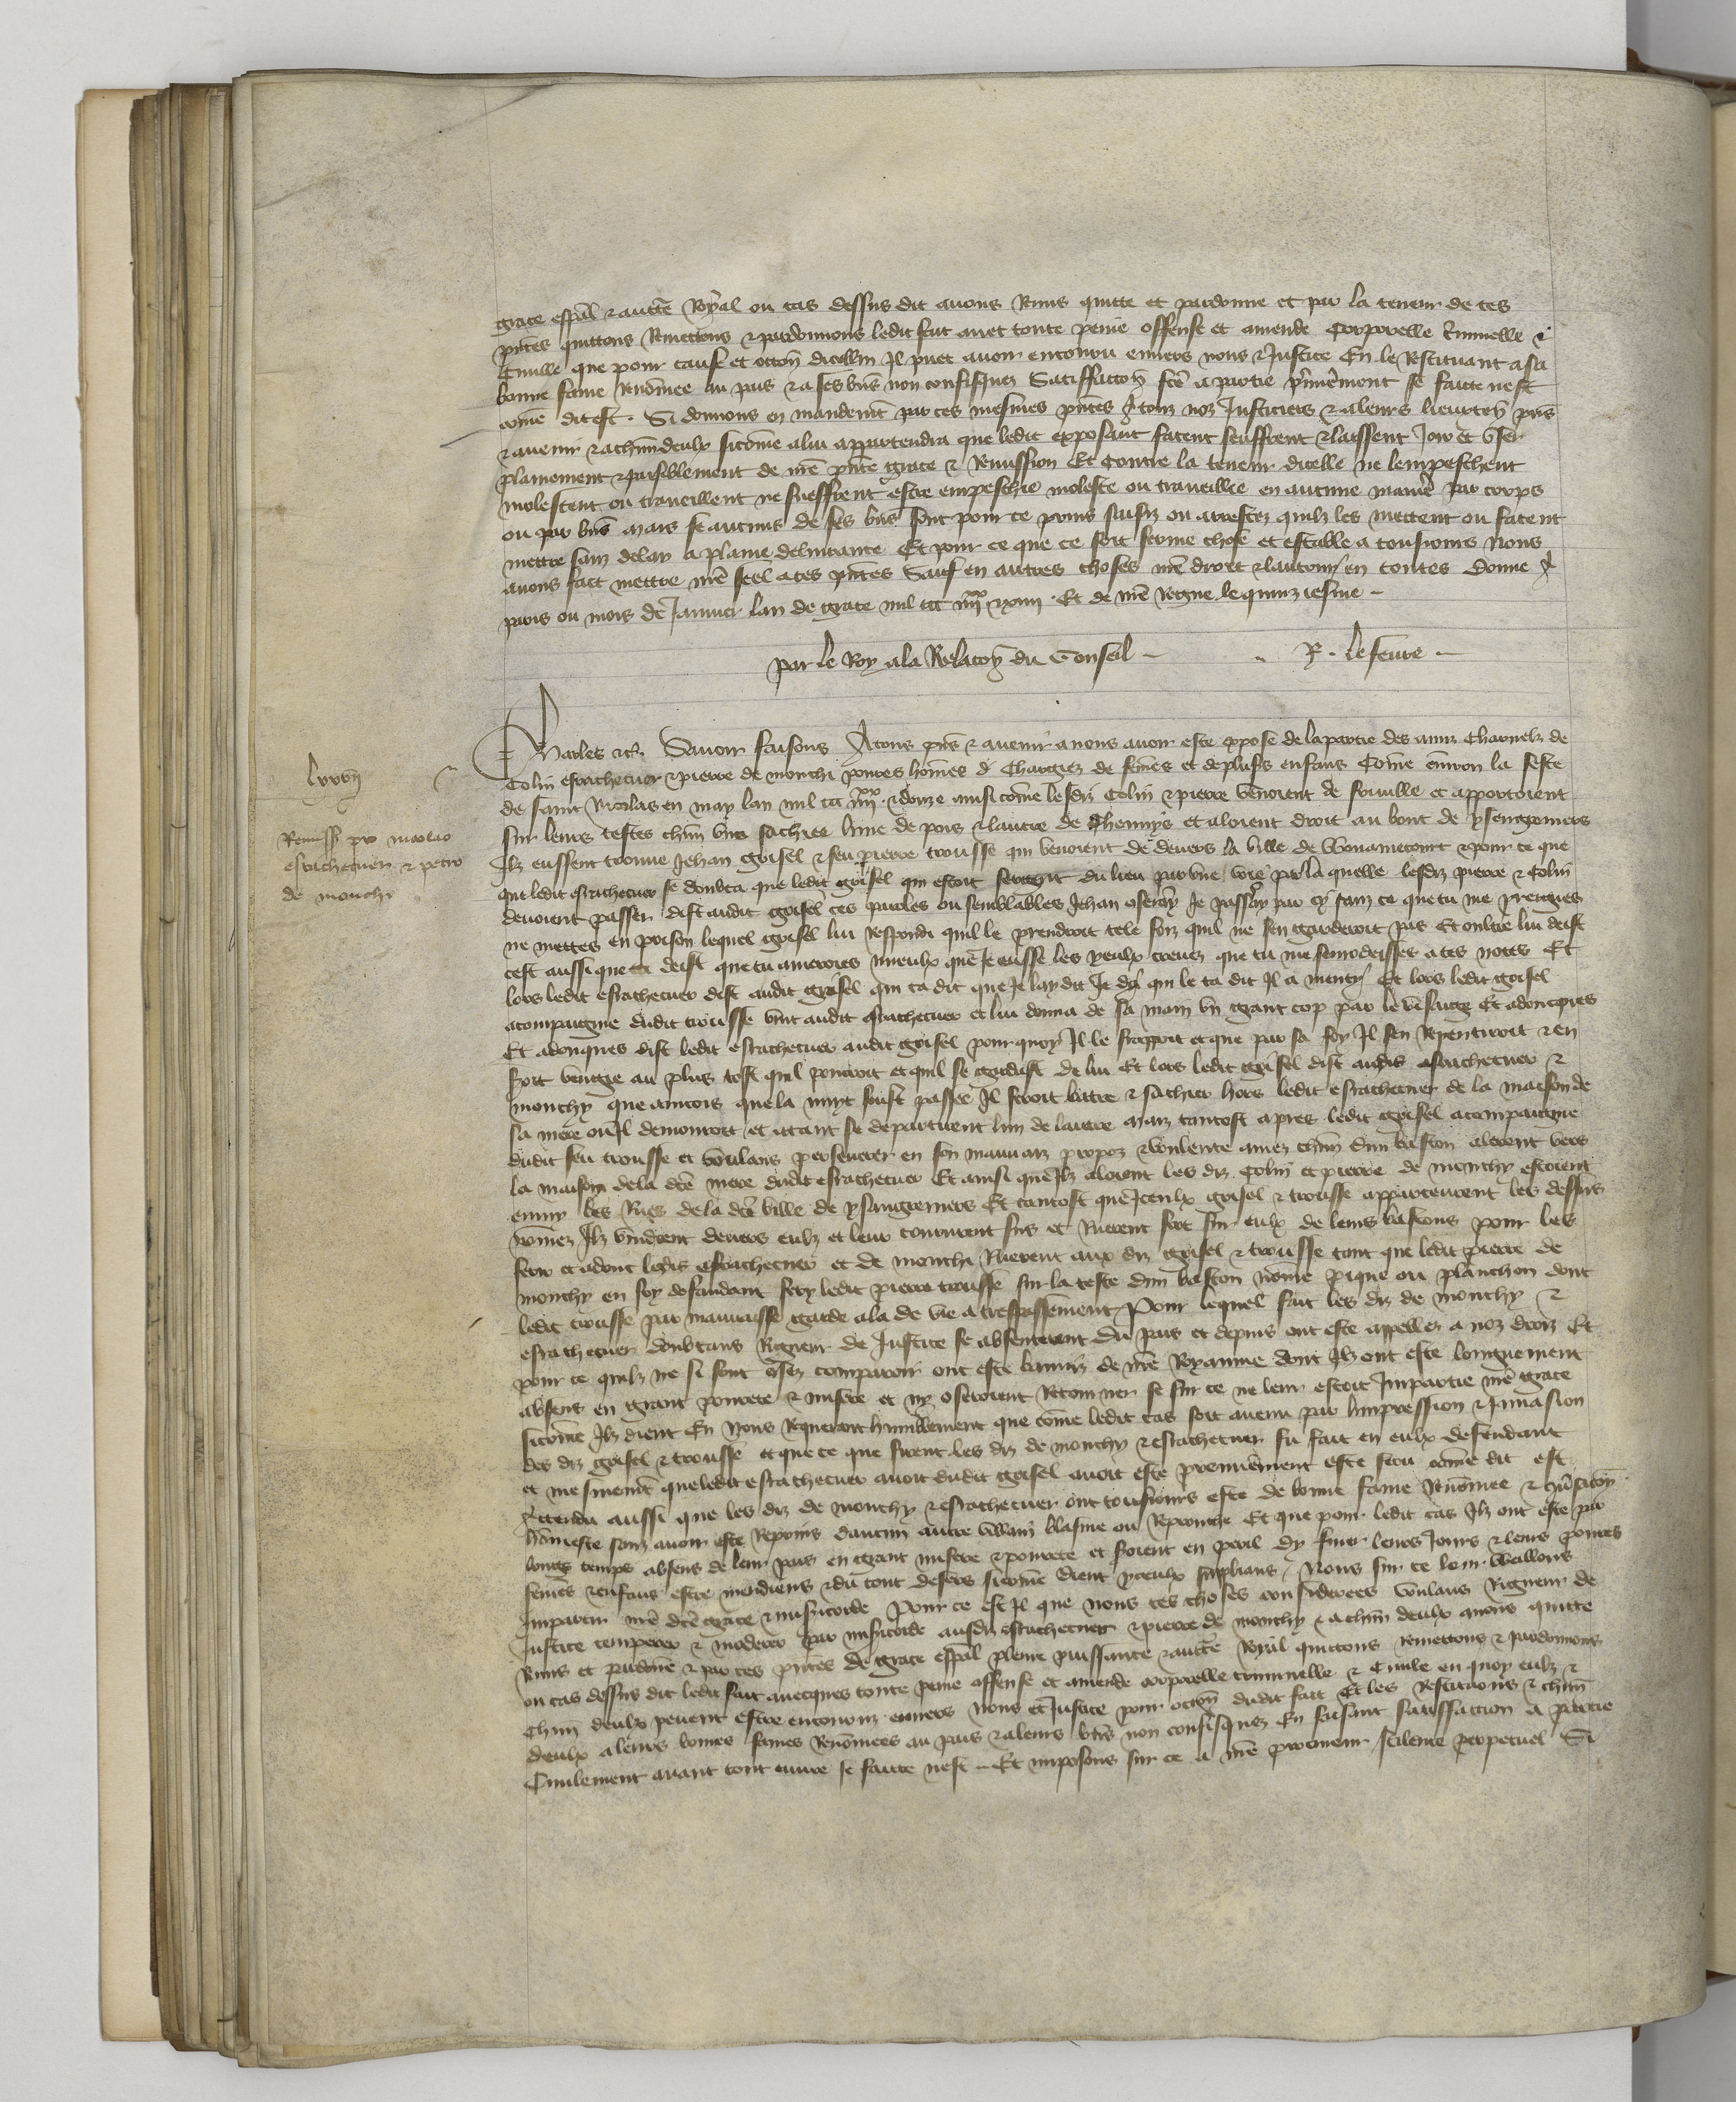 grace espāl & aucte Royal ou cas dessus dit auons Remis quitte et pardonne et par la teneur de ces
pñtes quittons Remettons & pardonnons ledit fait auec toute peine offense et amende Corporelle Criminelle &
Ciuille que pour cause et occōn dicellui Il puet auoir encouru enuers nous & Justice En le Restituant a sa
bonne fame Renōmee au pais & a ses biēs non confisquez Satisffaccōn fcē a partie premieremēt se faicte nest
cōme dit est. Si donnons en mandemēt par ces mesmes pñtes A touz noz Justiciers & a leurs lieuxteñ pñs
& auenir & a chūn deulx sicōme a lui appartendra que ledit exposant facent seuffrent & laissent Joir et vser
plainement & paisiblement de nrē pñte grace & Remission Et Contre la teneur dicelle ne lempeschent
molestent ou trauaillent ne sueffrent estre empeschie moleste ou trauaillie en aucune maniē par corps
ou par biēs mais se aucuns de ses biēs sont pour ce prins saisiz ou arrestez quilz les mettent ou facent
mettre sanz delay a plaine deliurance Et pour ce que ce soit ferme chose et estable a tousiours Nous
auons fait mettre nrē seel a ces pñtes Sauf en autres choses nrē droit & lautruy en toutes Donne A
paris ou mois de Januier lan de grace mil ccc iiiixx & xiiii. Et de nrē Regne le quinziesme
par le Roy a la Relacōn du Conseil
P. lefeure
lxxvii
Remiss pro nicolao
estachetuer & petro
de monchi
Charles &c. Sauoir faisons A tous pñs & auenir a nous auoir este expose de la partie des amis Charnelz de
Colin estrachetuer & pierre de monchi poures hōmes Chargiez de femes et de plusrs enfans Cōme enuiron la feste
de saint Nicolas en may lan mil ccc iiiixx & douze ainsi cōme lesdiz Colin & pierre venoient de et apportoient
sur leurs testes chūn vne sachiee lune de pois & lautre de Chenuys et aloient droit au bout de ysengremers
Ilz eussent trouue Jehan grisel & feu pierre trousse qui venoient de deuers la ville de & pour ce que
que ledit estrachetuer se doubta que ledit grisel qui estoit sergent du lieu par vne voie par la quelle lesdiz pierre & Colin
deuoient passer dist audit grisel ces paroles ou semblables Jehan oseray Je passer par cy sanz ce que tu me preignes
ne mettes en prison lequel grisel lui Respondi quil le prendroit tele foiz quil ne sen garderoit pas Et oultre lui deist
cest aussi que tu deiz que tu ameroies mieulx que Je eusse les yeulx creuez que tu me semodeisses a tes noces Et
lors ledit estrachetuer dist audit grisel qui ta dit que Je lay dit Je dy qui le ta dit Il a menty Et lors ledit grisel
acompaignie dudit trousse vint audit estrachetuer et lui donna de sa main vn grant cop par le visaige Et adoncques
Et adonques dist ledit estrachetuer audit grisel pour quoy Il le frappoit et que par sa foy Il sen Repentiroit & en
seroit vengie au plus tost quil pourroit et quil se gardast de lui Et lors ledit grisel dist audis estrachetuer &
monchy que aincois que la nuyt feust passee Il feroit batre & sachier hors ledit estrachetuer de la maison de
sa mere ou Il demouroit et atant se departirent lun de lautre maiz tantost apres ledit grisel acompaigne
dudit feu trousse et voulans perseuerer en son mauuaiz propoz & voulente auec chūn dun baston alerent vers
la maison de la dcē mere dudit estrachetuer Et ainsi que Ilz aloient les diz Colin et pierre de monchy estoient
enmy les Rues de la dcē ville de ysangremers Et tantost que Iceulx grisel & trousse apparceurent les dessus
nōmez Ilz vindrent deuers eulz et leur coururent sus et Ruerent fort sur eulx de leurs bastons pour les
ferir et adont lesdis estrachetuer et de monchi Ruerent aux diz grisel & trousse tant que ledit pierre de
monchy en soy defendant fery ledit pierre trousse sur la teste dun baston nōme pique ou planchon dont
ledit trousse par mauuaise garde ala de vie a trespassement Pour lequel fait les diz de monchy &
estrachetuer doubtans Rigueur de Justice se absenterent du pais et depuis ont este appellez a noz droiz Et
pour ce quilz ne si sont osez comparoir ont este banniz de nrē Royaume dont Ilz ont este longuement
absens en grant pourete & misere et ny oseroient Retourner se sur ce ne leur estoit Impartie nrē grace
sicōme Ilz dient En Nous Requerant humblement que cōme ledit cas soit auenu par linpression & Inuasion
des diz grisel & trousse et que ce que firent les diz de monchy & estrachetuer fu fait en eulx defendant
et mesmemēt que ledit estrachetuer auoit dudit grisel auoit este premieremēt este feru cōme dit est
Attendu aussi que les diz de monchy & estrachetuer ont tousiours este de bonne fame Renōmee & cōuersacōn
hōneste sanz auoir este Repris daucun autre villain blasme ou Reprouche Et que pour ledit cas Ilz ont este par
longs temps absens de leur pais en grant misere & pourete et soient en peril dy finer leurs Jours & leurs poures
femes & enfans estre mendiens & du tout desers sicōme dient yceulx supplians / Nous sur ce leur vueillons
Impartir nrē dcē grace & misericorde Pour ce est Il que nous ces choses considerees voulans Rigueur de
Justice temperer & moderer par misericorde ausdiz estrachetuer & pierre de monchy & a chūn deulx auons quitte
Remis et pardōne & par ces pñtes de grace espāl pleine puissance & aucte Royal quittons Remettons & pardonnons
ou cas dessus dit ledit fait auecques toute peine offense et amende corporelle criminelle & Ciuile en quoy eulz &
chūn deulx peuent estre encouruz enuers nous et Justice pour occōn dudit fait Et les Restituons & chūn
deulx a leurs bonnes fames Renōmees au pais & a leurs biēs non confisquez En faisant satisffaction a partie
Ciuilement auant tout euure se faicte nest Et imposons sur ce a nrē procureur scilence perpetuel Si